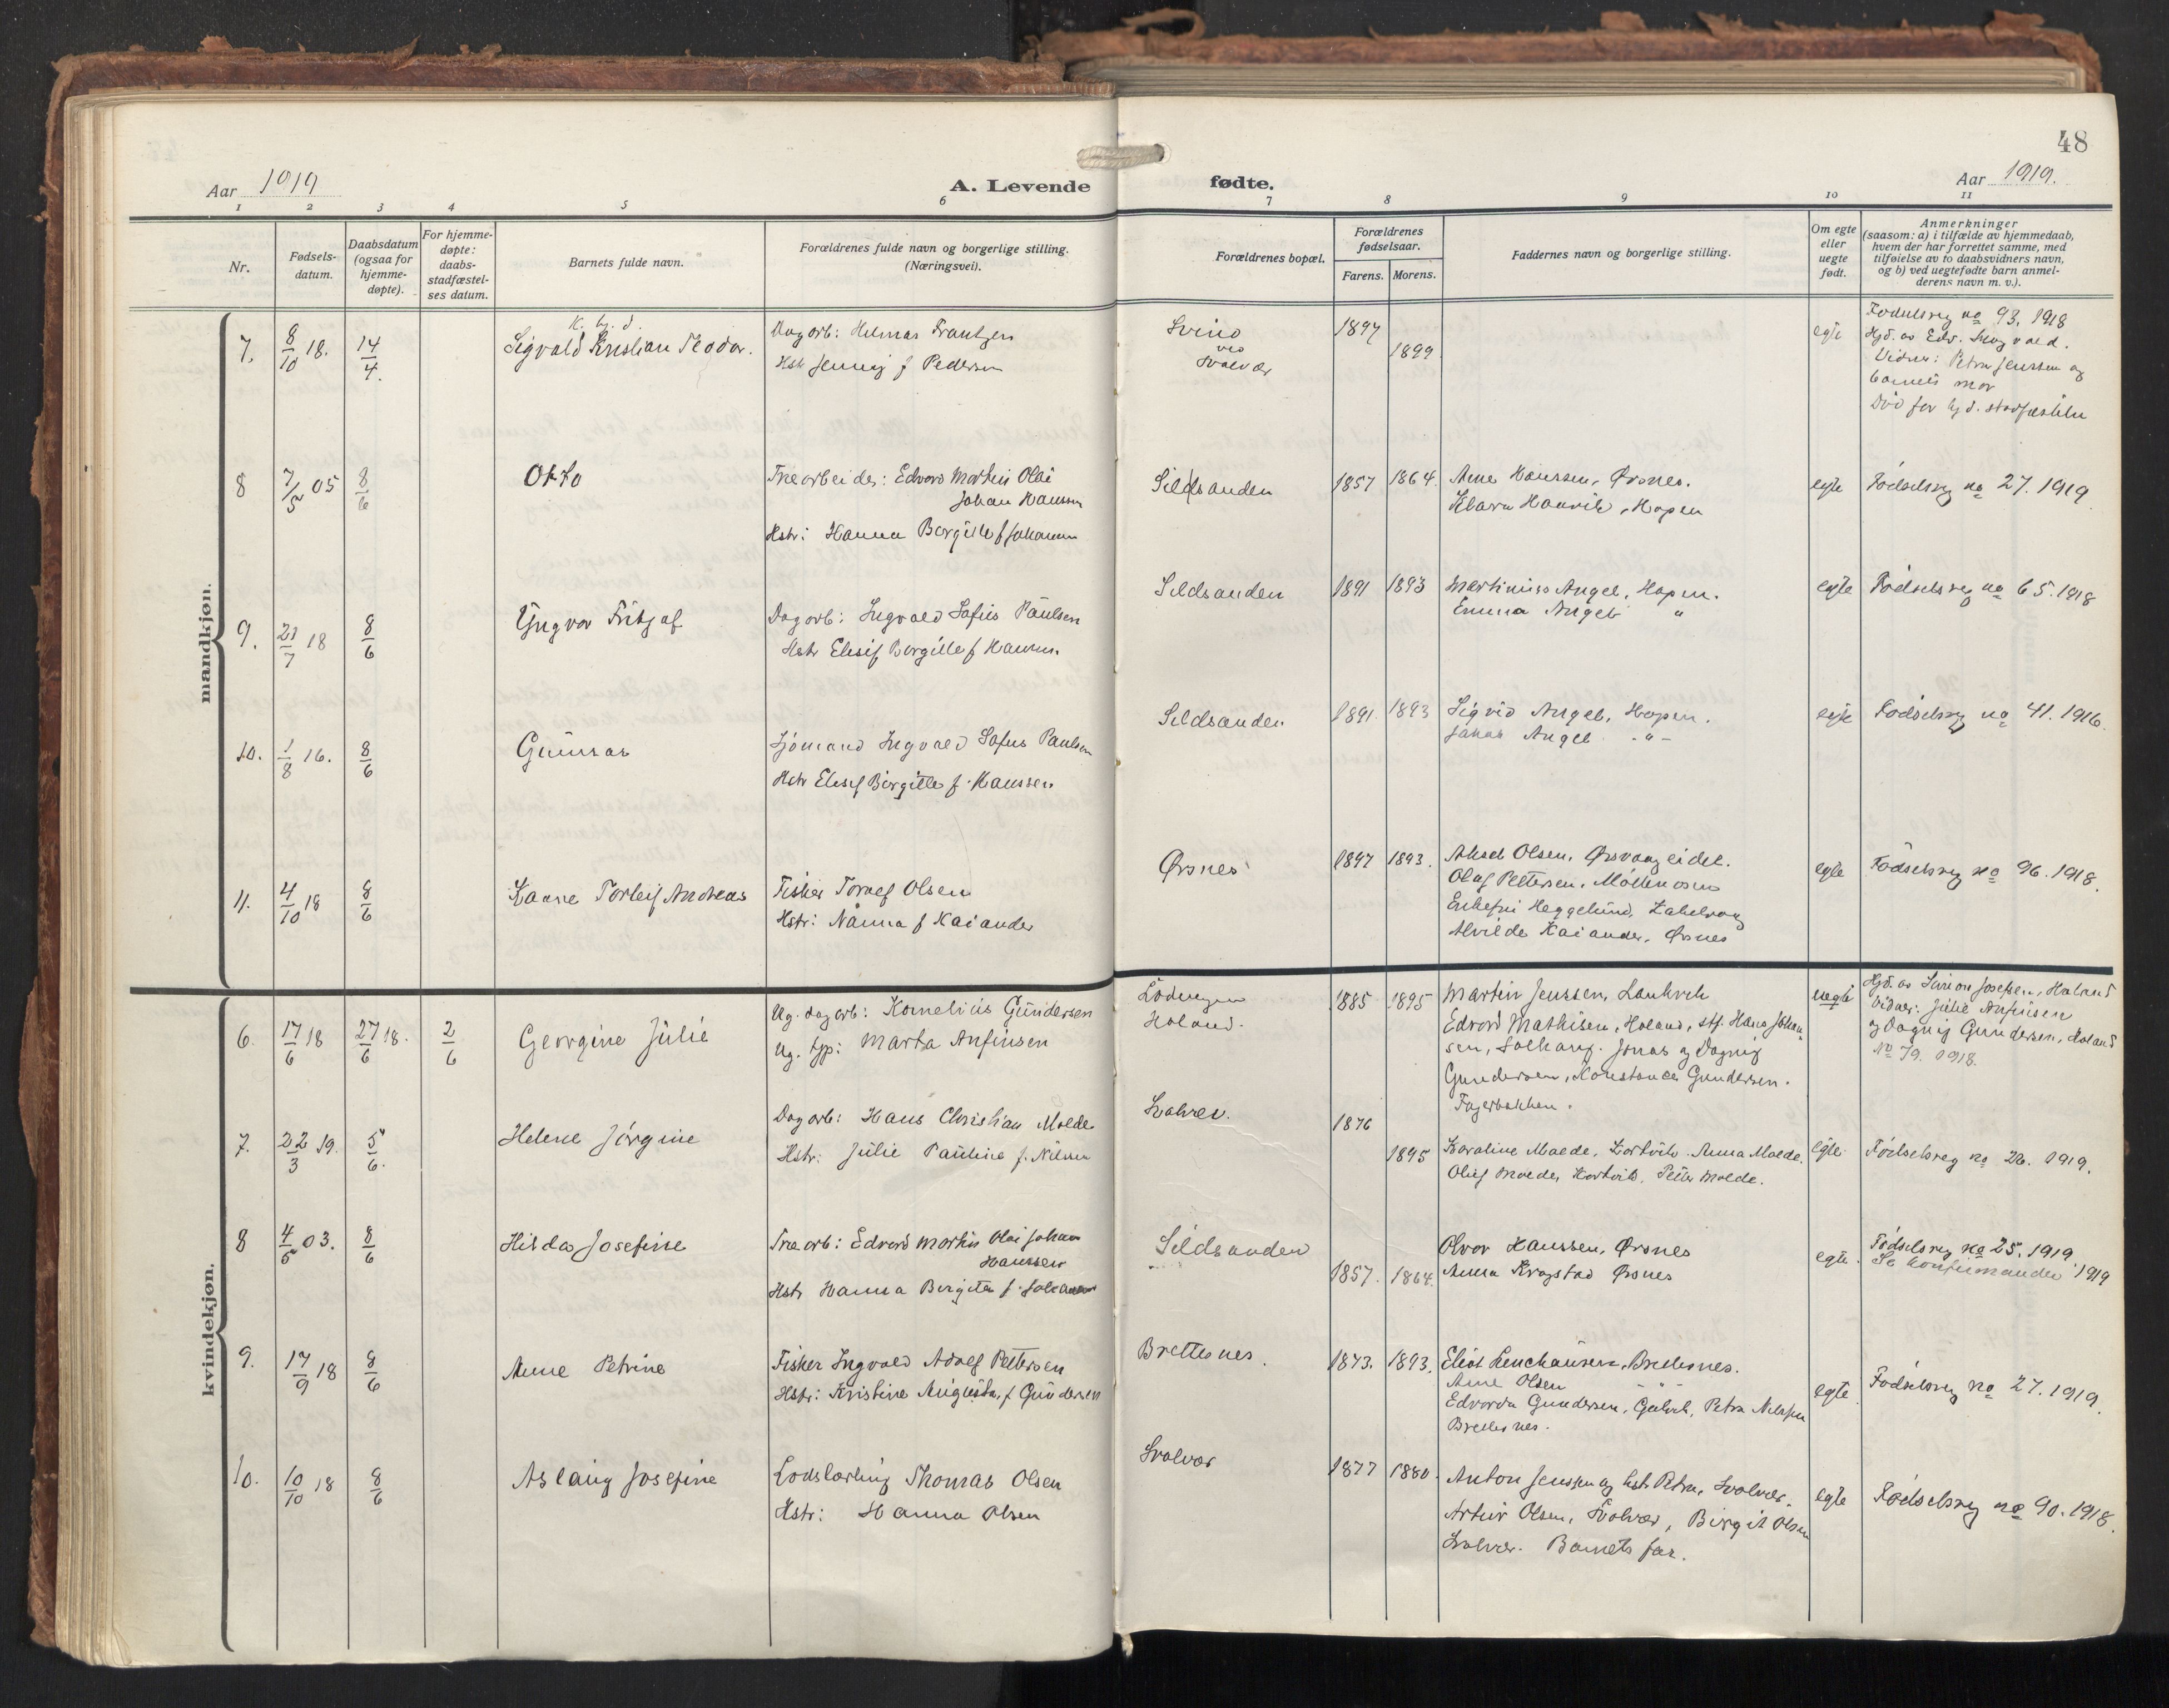 48
Aar 1919
A. Levende
fødte.
Aar 1919.
1 2 3 4 5 6
7 8 9 10 11
Nr.
Fødsels-
datum.
Daabsdatum
(ogsaa for
hjemme-
døpte).
For hjemme-
døpte:
daabs-
stadfæstel-
ses datum.
Barnets fulde navn.
Forældrenes fulde navn og borgerlige stilling.
(Næringsvei).
Forældrenes bopæl.
Forældrenes
fødselsaar.
Farens. Morens.
Faddernes navn og borgerlige stilling.
Om egte
eller
uegte
født.
Anmerkninger
(saasom: a) i tilfælde av hjemmedaab,
hvem der har forrettet samme, med
tilføielse av to daabsvidners navn,
og b) ved uegtefødte barn anmel-
derens navn m. v.).
mandkjøn.
7. 8/10 18. 14/4.
K. hj. d.
Sigvald Kristian Teodor.
Dagarb: Helmar Frantzen
Hstr Jenny f Pedersen
Svinø
ved
Svolvær
1897
1899
egte
Fødselsreg no 93. 1918
Hjd. av Edv.
Vidner: Petra Jenssen og
barnets mor
Død før hjd. stadfæstelse
8 7/5 05 8/6
Otto
Træarbeider: Edvard Martin Olai
Johan Hanssen
Hstr: Hanna Bergitte f Johansen
Sildsanden
1857 1864.
Arne Hanssen, Ørsnes.
Klara Hanvik, Hopen
egte
Fødselsreg no 27. 1919
9. 21/7 18 8/6
Yngvar Fritjof
Dagarb: Ingvald Sofus Paulsen
Hstr Elesif Bergitte f Hanssen.
Sildsanden
1891 1893
Martinius Angel, Hopen.
Emma Angel "
egte
Fødselsreg no 65. 1918
10. 1/8 16. 8/6
Gunnar
Sjømand Ingvald Sofus Paulsen
Hstr Elesif Birgitte f. Hanssen
Sildsanden
1891. 1893
Sigvid Angel, Hopen.
Jakob Angel - " -
egte
Fødselsreg no 41. 1916.
11. 4/10 18 8/6
Kaare Torleif Andreas
Fisker Torolf Olsen
Hstr: Nanna f Kaiander
Ørsnes
1897 1893.
Aksel Olsen, Ørsvaageidet.
Olaf Pettersen, Molldnosen
Enkefru Heggelund, Kabelvaag
Alvilde Kaiander, Ørsnes
egte
Fødselsreg no 96. 1918.
kvindekjøn.
6. 17/6 18 27/6 18. 2/6
Georgine Julie
Ug. dagarb: Kornelius Gundersen
Ug. tjp: Marta Anfinsen
Lødingen
Holand.
1885 1895
Martin Jenssen, Laukvik
Edvard Mathisen, Holand, stf. Hans Johan-
sen, Solhaug. Jonas og Dagny
Gundersen, Konstance Gundersen.
Fagerbakken.
uegte
Hjd. av Simon Josefsen, Holand
Vidner: Julie Anfinsen
og Dagny Gundersen, Holand
No 79. 1918.
7. 22/3 19. 5/6.
Helene Jørgine
Dagarb: Hans Christian Molde
Hstr: Julie Pauline f. Nilsen
Svolvær.
1876
1895
Karoline Molde, Kortvik. Anna Molde.
Oluf Molde, Kortvik, Peter Molde.
egte.
Fødselsreg no 26. 1919.
8 4/5 03. 8/6
Hilda Josefine
Træarb: Edvard Martin Olai Johan
Hanssen
Hstr Hanna Birgitte f. Johansen
Sildsanden
1857. 1864.
Olvar Hanssen, Ørsnes
Anna Krogstad Ørsnes
egte.
Fødselsreg no 25. 1919
Se konfirmander 1919
9. 17/9 18 8/6
Anne Petrine
Fisker Ingvald Adolf Pettersen
Hstr: Kristine Augusta, f Gundersen
Brettesnes.
1873. 1893.
Eliot Lenchausen, Brettesnes.
Arne Olsen - " -
Edvarda Gundersen, Gulvik, Petra Nilssen
Brettesnes.
egte.
Fødselsreg no 27. 1919.
10. 10/10 18 8/6
Aslaug Josefine
Lodslærling Thomas Olsen
Hstr: Hanna Olsen
Svolvær
1877 1880.
Anton Jenssen og hstr Petra, Svolvær.
Artur Olsen, Svolvær, Birgit Olsen
Svolvær. Barnets far.
egte
Fødselsreg no 90. 1918.